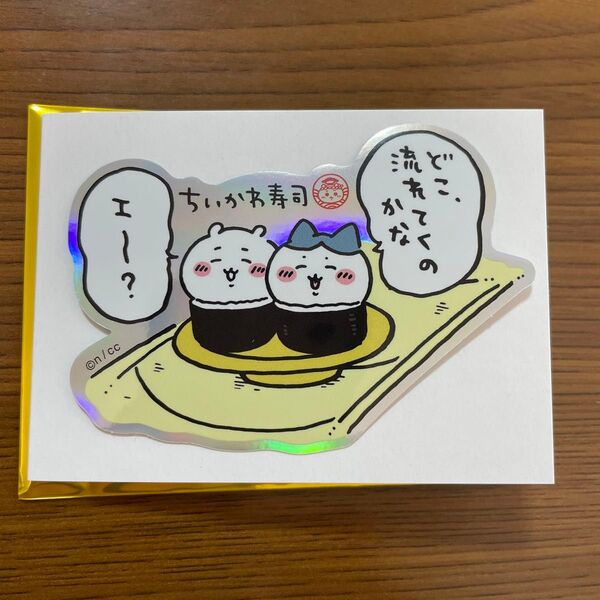 どこ、
流れてくの
かな
ちいかわ寿司
エ〜?
©n/cc